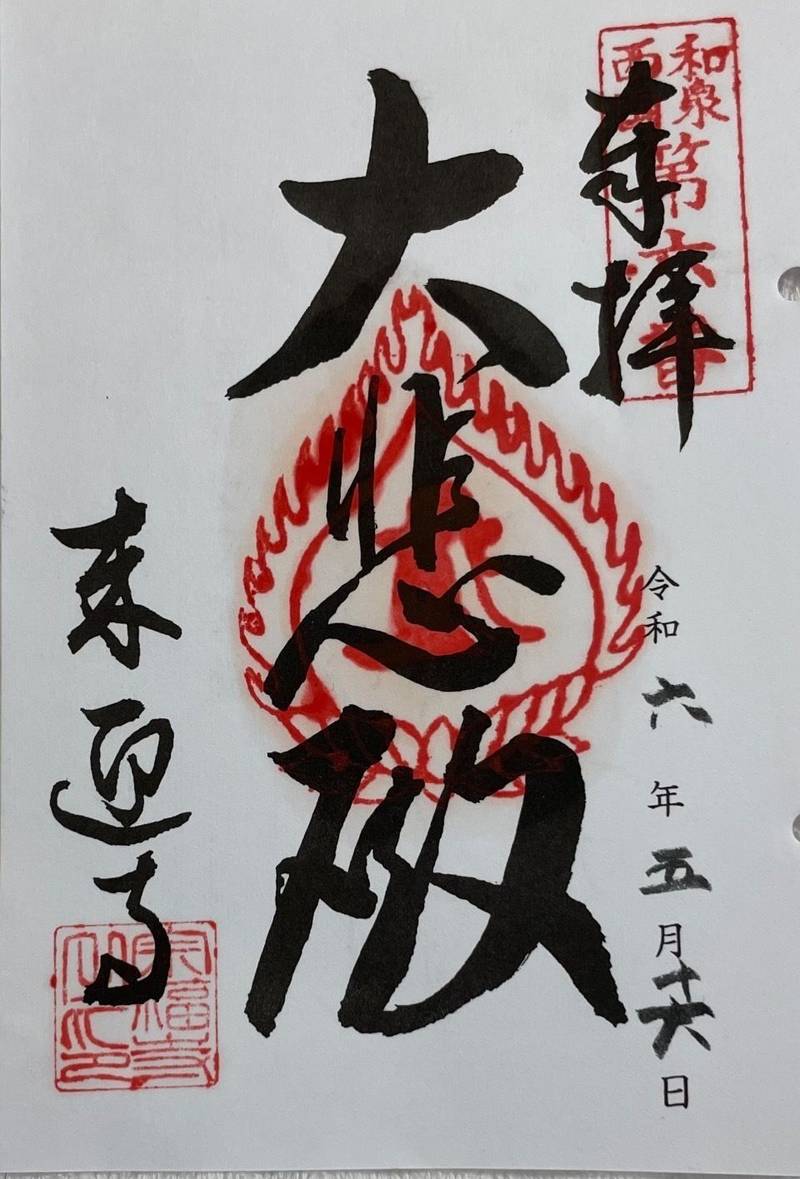 和泉
西国
第六番
奉拝
令和六年五月十六日
大悲殿
来迎寺